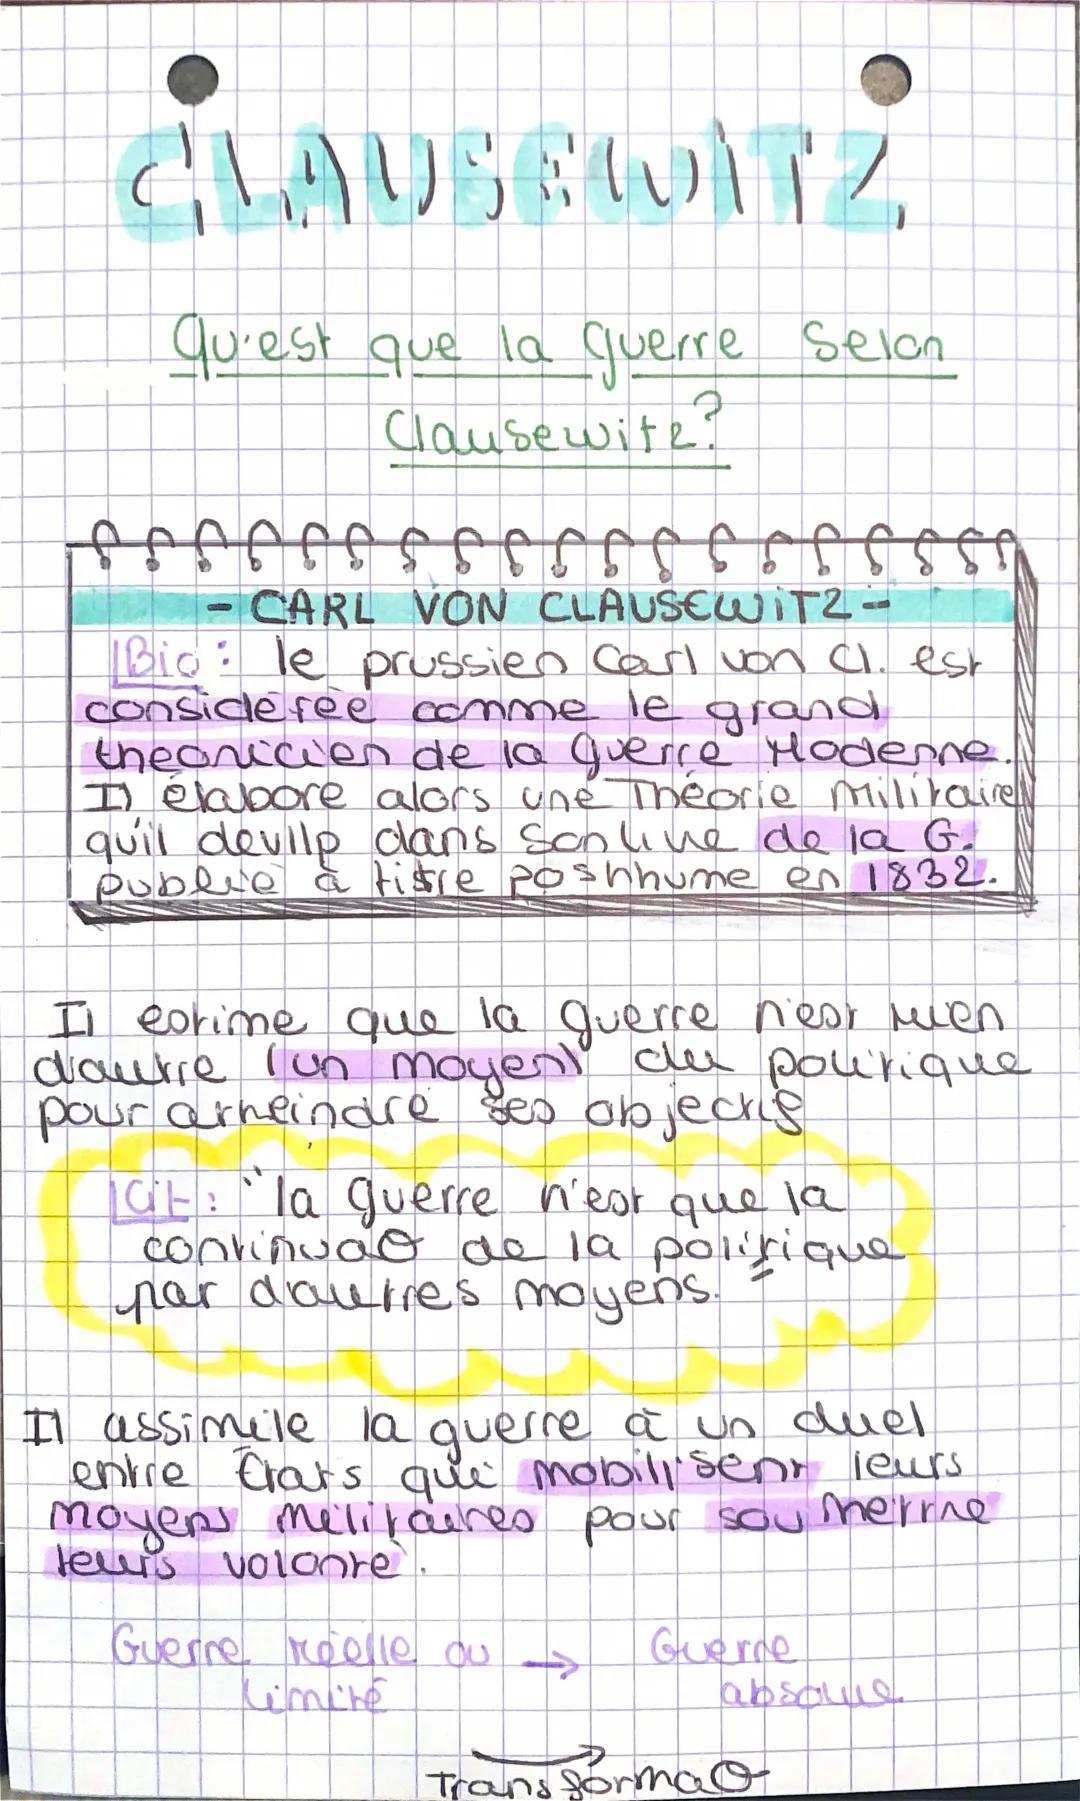 CLAUSEWITZ
Qu'est que la guerre selon
Clausewitz?
- CARL VON CLAUSEWITZ -
Bio: le prussien Carl von Cl. est
considérée comme le grand
theoricien de la guerre Moderne.
Il élabore alors une Théorie militaire
qu'il devllp dans son livre de la G.
publié à titre posthhume en 1832.
Il estime que la guerre n'est rien
d'autre (un moyen) du politique
pour atteindre ses objectifs
Cit: "la guerre n'est que la
continuaO de la politique
par d'autres moyens."
Il assimile la guerre à un duel
entre États qui mobilisent leurs
moyens militaires pour soumettre
leurs volonté.
Guerre réelle ou → Guerre
limité absolue
TransformaO